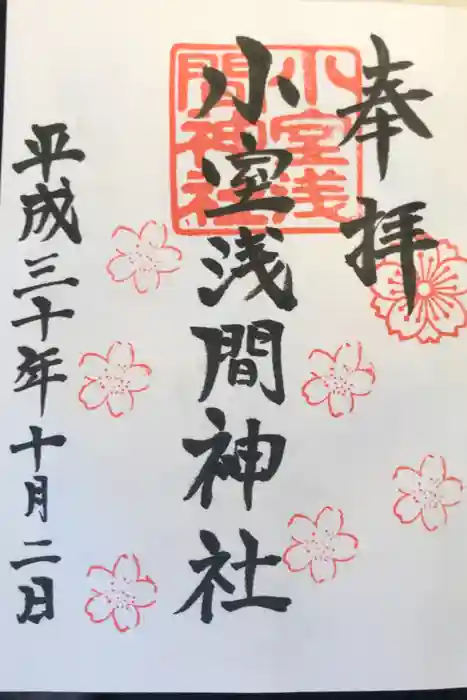 奉拝
小室浅間神社
小室浅間神社
平成三十年十月二日